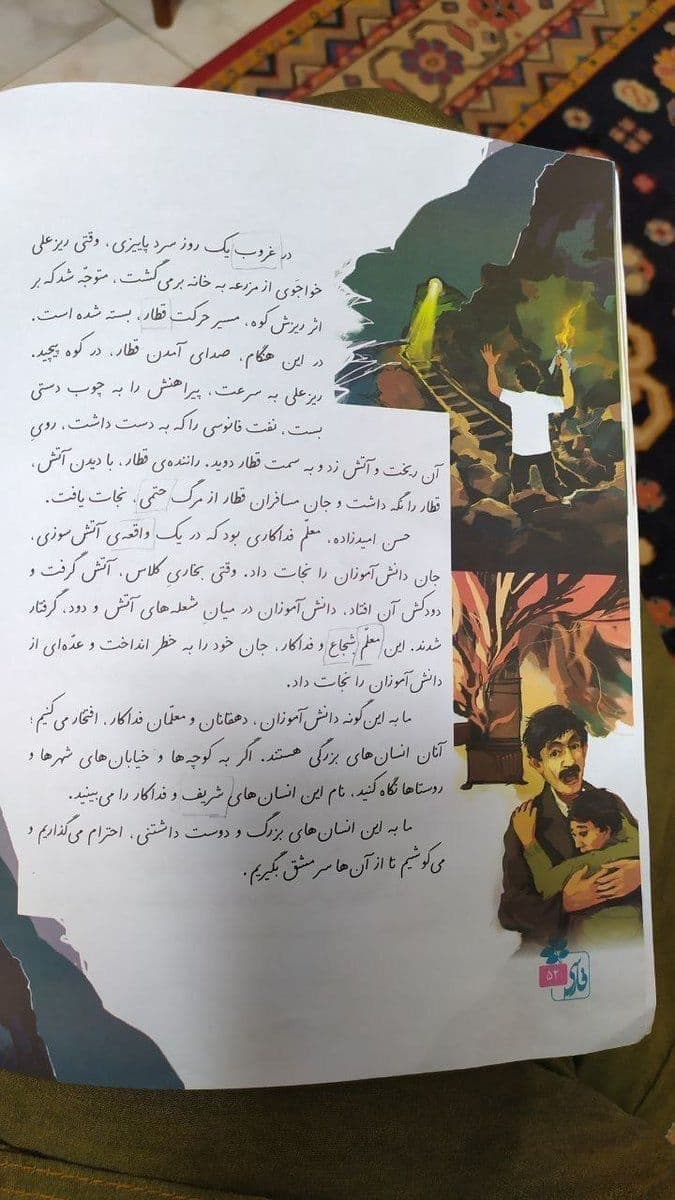 در غروب یک روز سرد پاییزی، وقتی ریزعلی
خواجَوی از مزرعه به خانه برمی‌گشت، متوجّه شد که بر
اثر ریزش کوه، مسیر حرکت قطار، بسته شده است.
در این هنگام، صدای آمدن قطار، در کوه پیچید.
ریزعلی به سرعت، پیراهنش را به چوب دستی
بست، نفت فانوسی را که به دست داشت، رویِ
آن ریخت و آتش زد و به سمت قطار دوید. راننده‌ی قطار، با دیدن آتش،
قطار را نگه داشت و جان مسافران قطار از مرگ حتمی، نجات یافت.
حسن امیدزاده، معلّم فداکاری بود که در یک واقعه‌ی آتش سوزی،
جان دانش‌آموزان را نجات داد. وقتی بخاریِ کلاس، آتش گرفت و
دودکش آن افتاد، دانش‌آموزان در میانِ شعله‌های آتش و دود، گرفتار
شدند. این معلّم شجاع و فداکار، جان خود را به خطر انداخت و عدّه‌ای از
دانش‌آموزان را نجات داد.
ما به این‌گونه دانش‌آموزان، دهقانان و معلّمان فداکار، افتخار می‌کنیم؛
آنان انسان‌های بزرگی هستند. اگر به کوچه‌ها و خیابان‌های شهرها و
روستاها نگاه کنید، نام این انسان‌های شریف و فداکار را می‌بینید.
ما به این انسان‌های بزرگ و دوست داشتنی، احترام می‌گذاریم و
می‌کوشیم تا از آن‌ها سرمشق بگیریم.
فارسی
۵۲